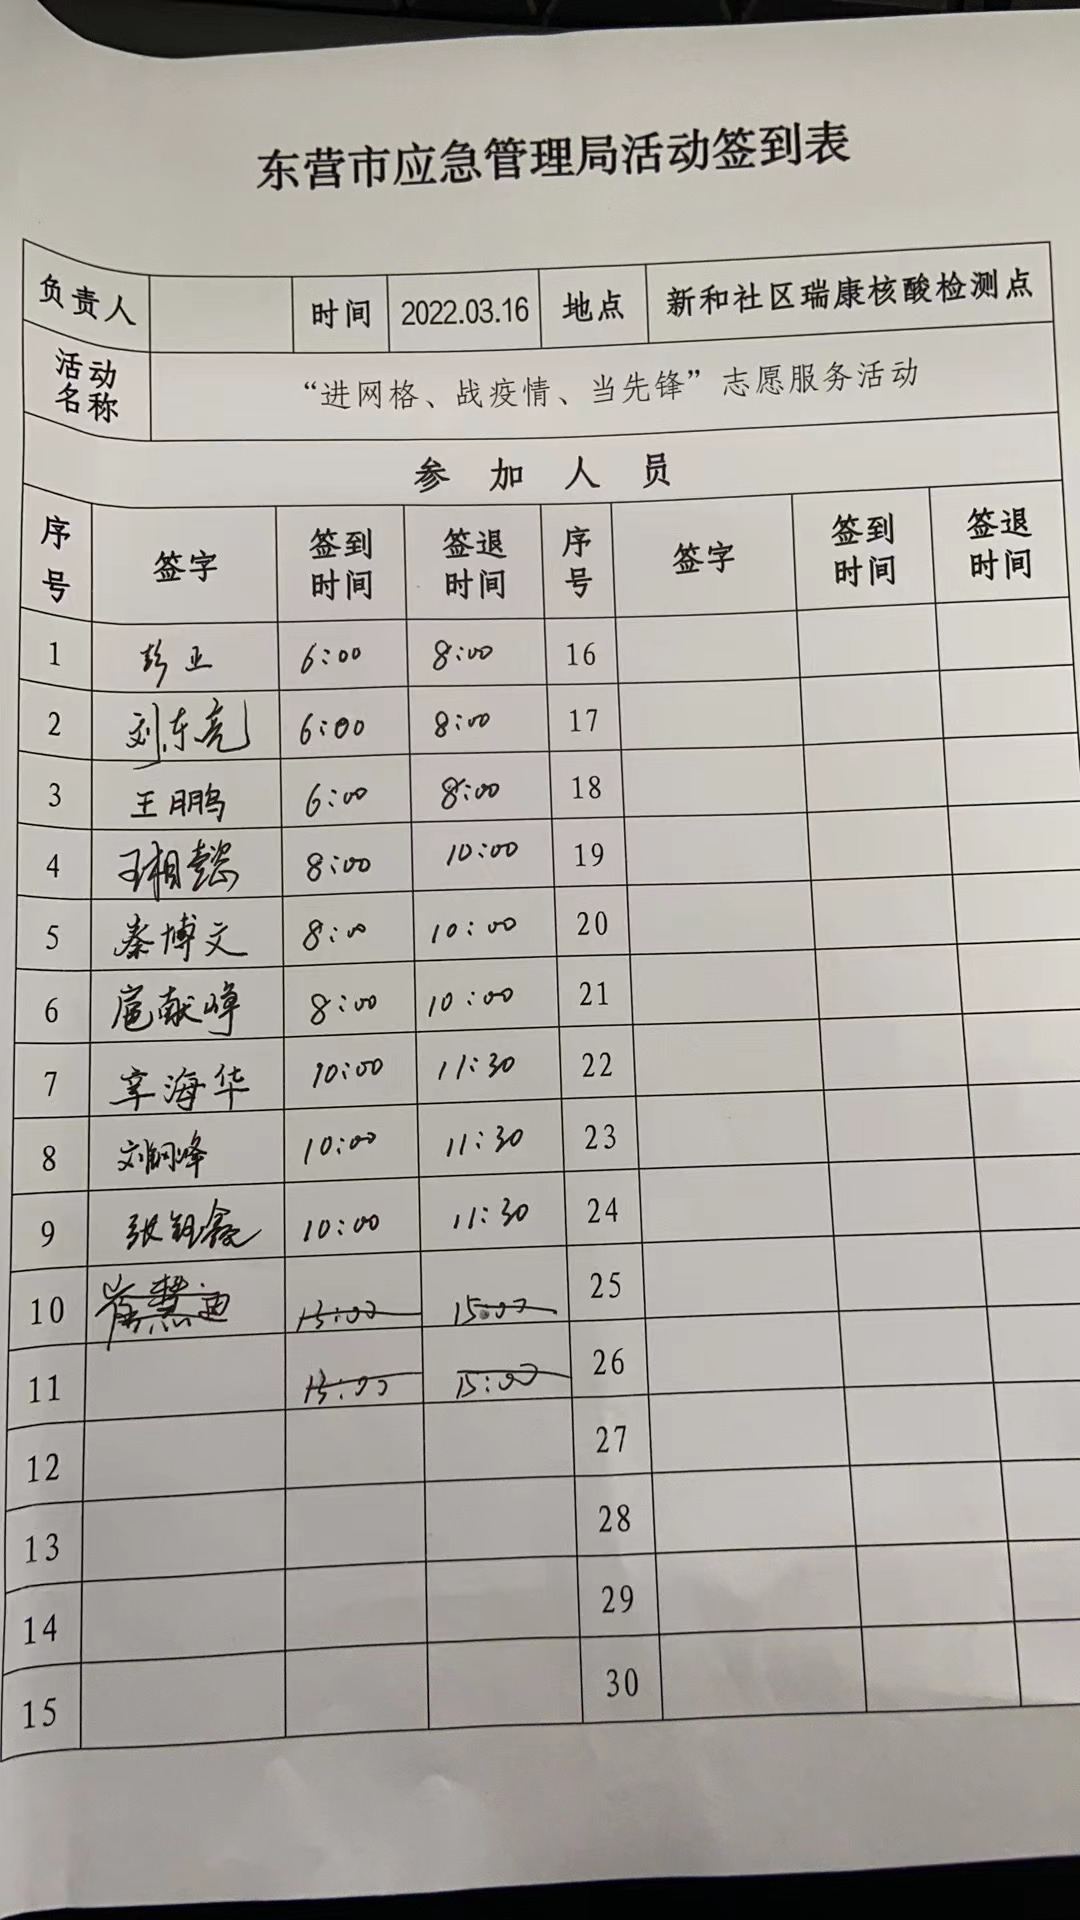 东营市应急管理局活动签到表
负责人 时间 2022.03.16 地点 新和社区瑞康核酸检测点
活动名称 “进网格、战疫情、当先锋”志愿服务活动
参加人员
序号 签字 签到时间 签退时间 序号 签字 签到时间 签退时间
1 彭亚 6:00 8:00 16
2 刘东亮 6:00 8:00 17
3 王鹏 6:00 8:00 18
4 王相懿 8:00 10:00 19
5 秦博文 8:00 10:00 20
6 扈献峰 8:00 10:00 21
7 海华 10:00 11:30 22
8 刘 峰 10:00 11:30 23
9 张钰鑫 10:00 11:30 24
10 崔慧迪 13:00 15:00 25
11 13:00 15:00 26
12 27
13 28
14 29
15 30